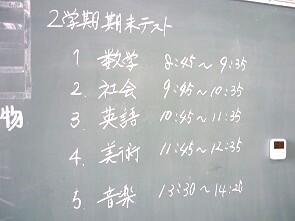 2学期期末テスト
1 数学 8:45～9:35
2. 社会 9:45～10:35
3. 英語 10:45～11:35
4. 美術 11:45～12:35
5. 音楽 13:30～14:20
物